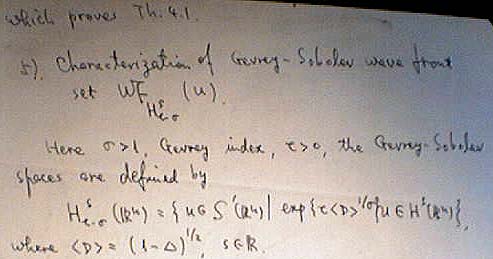 which proves Th. 4.1.
5). Characterization of Gevrey-Sobolev wave front
set WF_{H^s_{τ,σ}} (u).
Here σ>1, Gevrey index, τ>0, the Gevrey-Sobolev
spaces are defined by
H^s_{τ,σ} (ℝⁿ) = { u ∈ S'(ℝⁿ) | exp{τ<D>^{1/σ}}u ∈ H^s(ℝⁿ)},
where <D> = (1-Δ)^{1/2}, s∈ℝ.